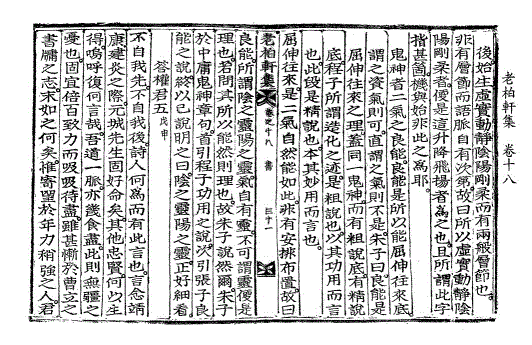 老柏軒集　卷十八
後始生虛實動靜陰陽剛柔而有兩般層節也
非有層節而語脈自有次第故曰所以虛實動靜陰
陽剛柔者便是這升降飛揚者爲之也且所謂此字
指甚箇機與始非此之爲耶
鬼神者二氣之良能良能是所以能屈伸往來底
謂之資氣則可直謂之氣則不是朱子曰良能是
屈伸往來之理蓋同一鬼神而有粗說底有精說
底程子所謂造化之迹是粗說也以其功用而言
也此段是精說也本其妙用而言也
屈伸往來是二氣自然能如此非有安排布置故曰
老柏軒集　卷之十八　書　三十一
良能所謂陰之靈陽之靈氣自有靈不可謂靈便是
理也若問其所以能然則理也故朱子說然爾朱子
於中庸鬼神章句首引程子功用之說次引張子良
能之說終以已說明之曰陰之靈陽之靈正好細看
答權君五戊申
不自我先不自我後詩人何爲而有此言也言念靖
康建炎之際元城先生固好命矣其他忠賢何以生
得嗚呼復何言哉吾道一脈亦幾食盡此則無疆之
憂也固宜倍百致力而吸吸待盡雖甚慚於曹立之
書牖之志末如之何矣惟寄望於年力稍強之人君